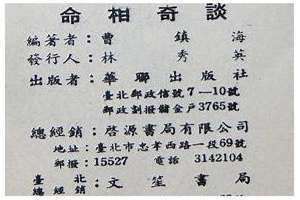 命相奇談
編著者：曹鎮海
發行人：林秀英
出版者：華聯出版社
臺北郵政信號7—10號
郵政劃撥儲金戶3765號
總經銷：啓源書局有限公司
地址：臺北市忠孝西路一段69號
郵撥：15527 電話 3142104
臺北總經銷：文笙書局